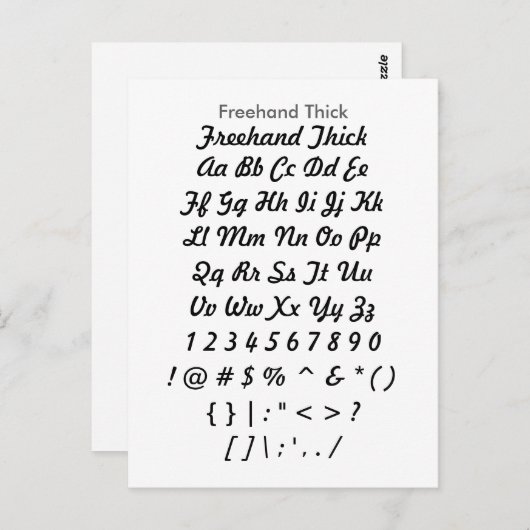 Freehand Thick
Freehand Thick
Aa Bb Cc Dd Ee
Ff Gg Hh Ii Jj Kk
Ll Mm Nn Oo Pp
Qq Rr Ss Tt Uu
Vv Ww Xx Yy Zz
1 2 3 4 5 6 7 8 9 0
! @ # $ % ^ & * ( )
{ } | : " < > ?
[ ] \ ; ' , . /